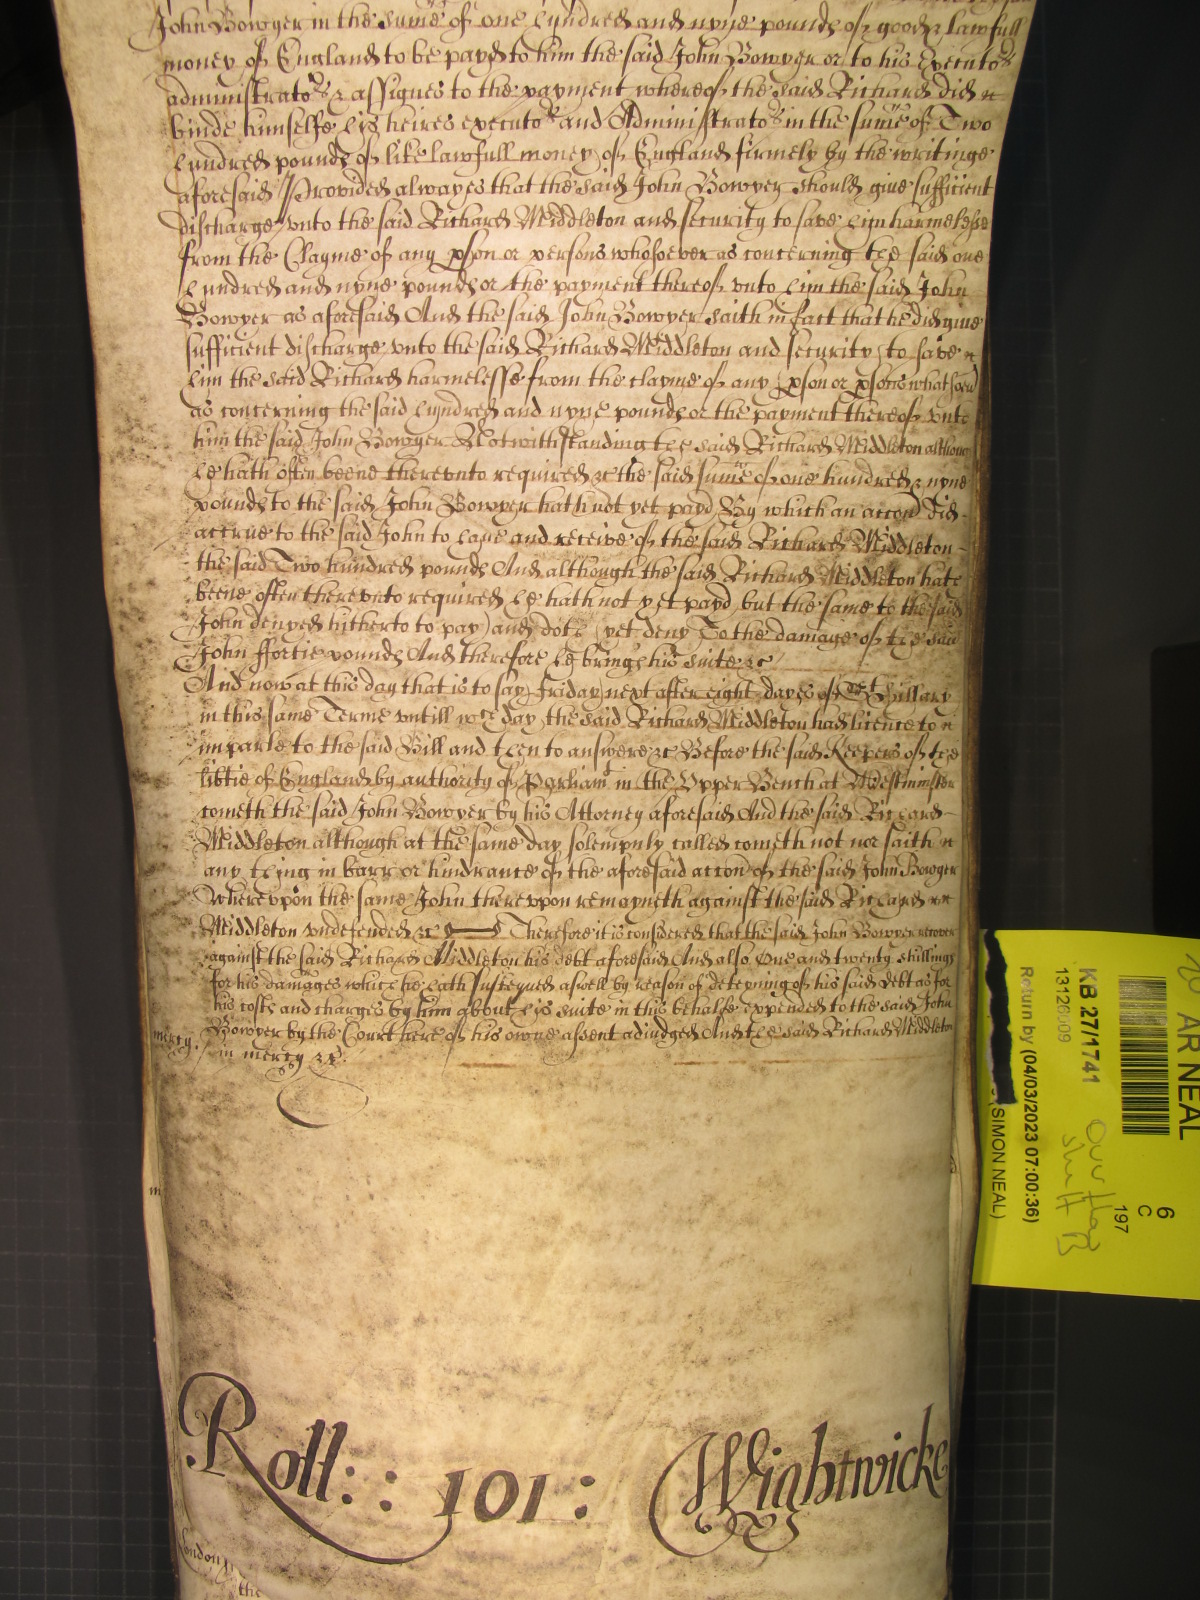 John Bowyer in the sume of one hundred and nyne pounds of good & lawfull
money of England to be payd to him the said John Bowyer or to his Executors
administrators & assignes to the payment whereof the said Richard did
binde himselfe his heires executors and Administrators in the sume of Two
hundred pounds of like lawfull money of England firmely by the writinge
aforesaid Provided alwayes that the said John Bowyer should give sufficient
discharge vnto the said Richard Middleton and security to save him harmelesse
from the Clayme of any pson or persons whosoever as concerning the said one
hundred and nyne pounds or the payment thereof vnto him the said John
Bowyer as aforesaid And the said John Bowyer saith in fact that he did give
sufficient discharge vnto the said Richard Middleton and security to save
him the said Richard harmelesse from the clayme of any pson or psons whatsoever
as concerning the said hundred and nyne pounds or the payment thereof vnto
him the said John Bowyer Notwithstanding the said Richard Middleton although
he hath often beene therevnto required &c the said sume of one hundred & nyne
pounds to the said John Bowyer hath not yet payd By which an accon did
accrue to the said John to have and receive of the said Richard Middleton
the said Two hundred pounds And although the said Richard Middleton hath
beene often therevnto required he hath not yet payd but the same to the said
John denyed hitherto to pay and doth yet deny To the damage of the said
John ffortie pounds And therefore he brings his suite &c
And now at this day that is to say Friday next after eight dayes of St Hillary
in this same Terme vntill wch day the said Richard Middleton had licence to
imparle to the said Bill and then to answere &c Before the said Keepers of the
libtie of England by authority of Parliamt in the Vpper Bench at Westminster
cometh the said John Bowyer by his Attorney aforesaid And the said Richard
Middleton although at the same day solempnly called cometh not nor saith
any thing in barr or hindrance of the aforesaid accon of the said John Bowyer
Wherevpon the same John therevpon remayneth against the said Richard
Middleton vndefended &c Therefore it is considered that the said John Bowyer recover
against the said Richard Middleton his debt aforesaid And also One and twenty shillings
for his damages which he hath susteyned aswell by reason of deteyning of his said debt as for
his costs and charges by him about his suite in this behalfe expended to the said John
Bowyer by the Court here of his owne assent adiudged And the said Richard Middleton
mercy. in mercy &c.
Roll : : 101 : Wightwicke
London
the
AR NEAL
6
C
197
KB 27/1741
13126009
Return by (04/03/2023 07:00:36)
(SIMON NEAL)